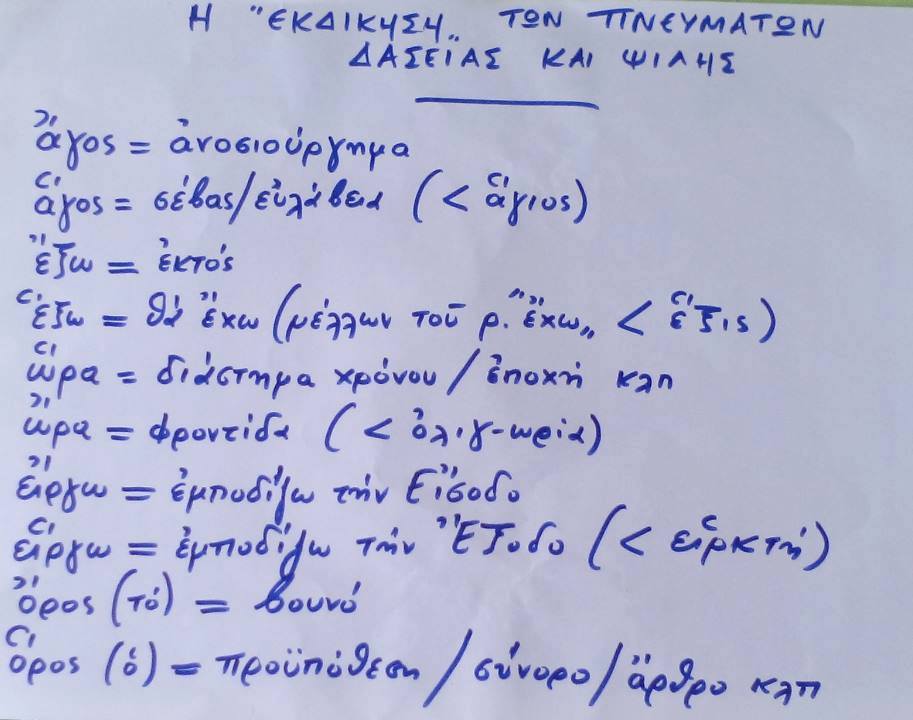 Η "ΕΚΔΙΚΗΣΗ„ ΤΩΝ ΠΝΕΥΜΑΤΩΝ
ΔΑΣΕΙΑΣ ΚΑΙ ΨΙΛΗΣ
ἄγος = ἀνοσιούργημα
ἅγος = σέβας/εὐλάβεια (< ἅγιος)
ἔξω = ἐκτός
ἕξω = θά ἔχω (μέλλων τοῦ ρ. "ἔχω„ < ἕξις)
ὥρα = διάστημα χρόνου / ἐποχή κλπ
ὤρα = φροντίδα (< ὀλιγ-ωρία)
εἴργω = ἐμποδίζω τήν Εἴσοδο
εἵργω = ἐμποδίζω τήν Ἔξοδο (< εἱρκτή)
ὄρος (τό) = βουνό
ὅρος (ὁ) = προϋπόθεση / σύνορο / ἄρθρο κλπ